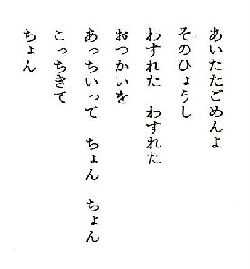 あいたたごめんよ
そのひょうし
わすれた　わすれた
おつかいを
あっちいって　ちょん　ちょん
こっちきて
ちょん